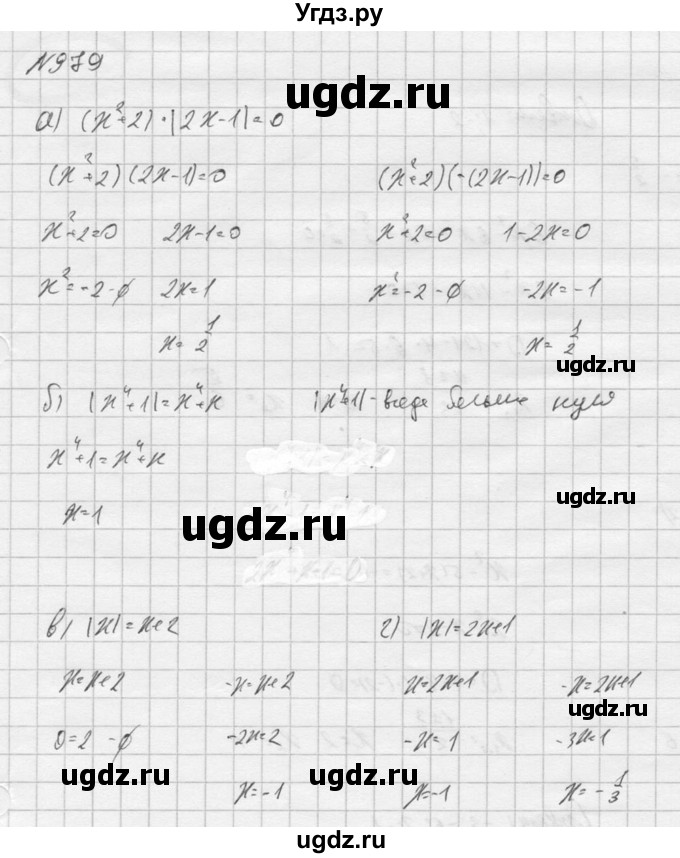 Угдз.ру
ugdz.ru
N979
а) (x²+2)·|2x-1|=0
(x²+2)(2x-1)=0 (x²+2)(-(2x-1))=0
x²+2=0 2x-1=0 x²+2=0 1-2x=0
x²=-2-∅ 2x=1 x²=-2-∅ -2x=-1
x=1/2 x=1/2
ugdz.ru
б) |x⁴+1|=x⁴+x |x⁴+1|-всегда больше нуля
x⁴+1=x⁴+x
ugdz.ru
x=1
ugdz.ru
в) |x|=x+2 г) |x|=2x+1
x=x+2 -x=x+2 x=2x+1 -x=2x+1
ugdz.ru
0=2-∅ -2x=2 -x=1 -3x=1
ugdz.ru ugdz.ru
x=-1 x=-1 x=-1/3
ugdz.ru